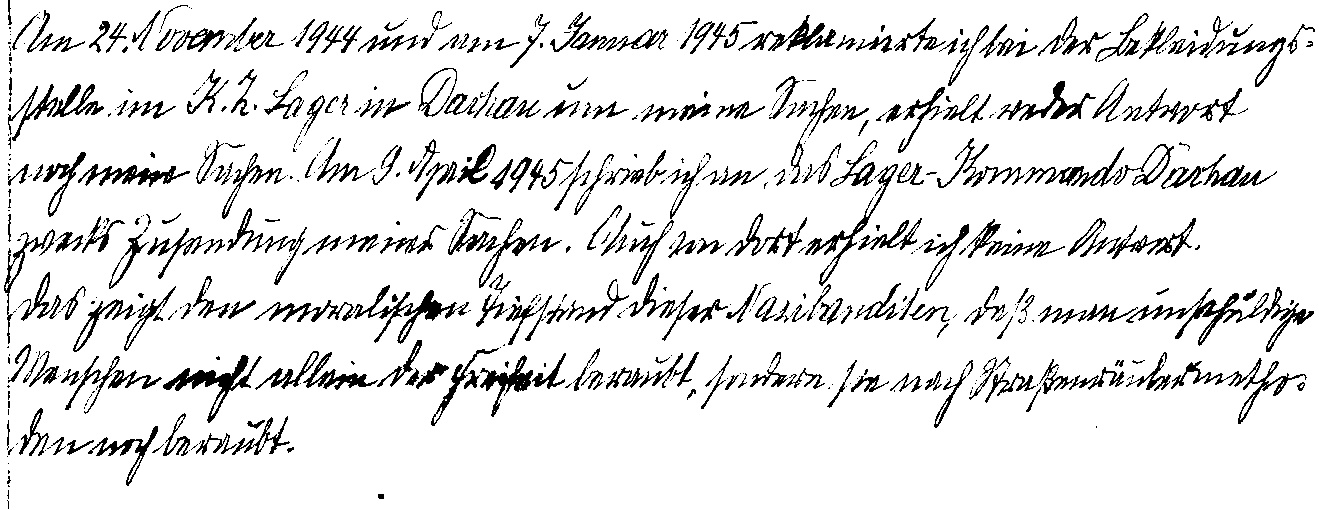 Am 24. November 1944 und am 7. Januar 1945 reklamierte ich bei der Bekleidungs-
stelle im K. Z. Lager in Dachau um meine Sachen, erhielt weder Antwort
noch meine Sachen. Am 9. April 1945 schrieb ich an das Lager-Kommando Dachau
zwecks Zusendung meiner Sachen. Auch von dort erhielt ich keine Antwort.
Das zeigt den moralischen Tiefstand dieser Nazibanditen, daß man unschuldige
Menschen nicht allein der Freiheit beraubt, sondern sie nach Straßenräubermetho-
den noch beraubt.